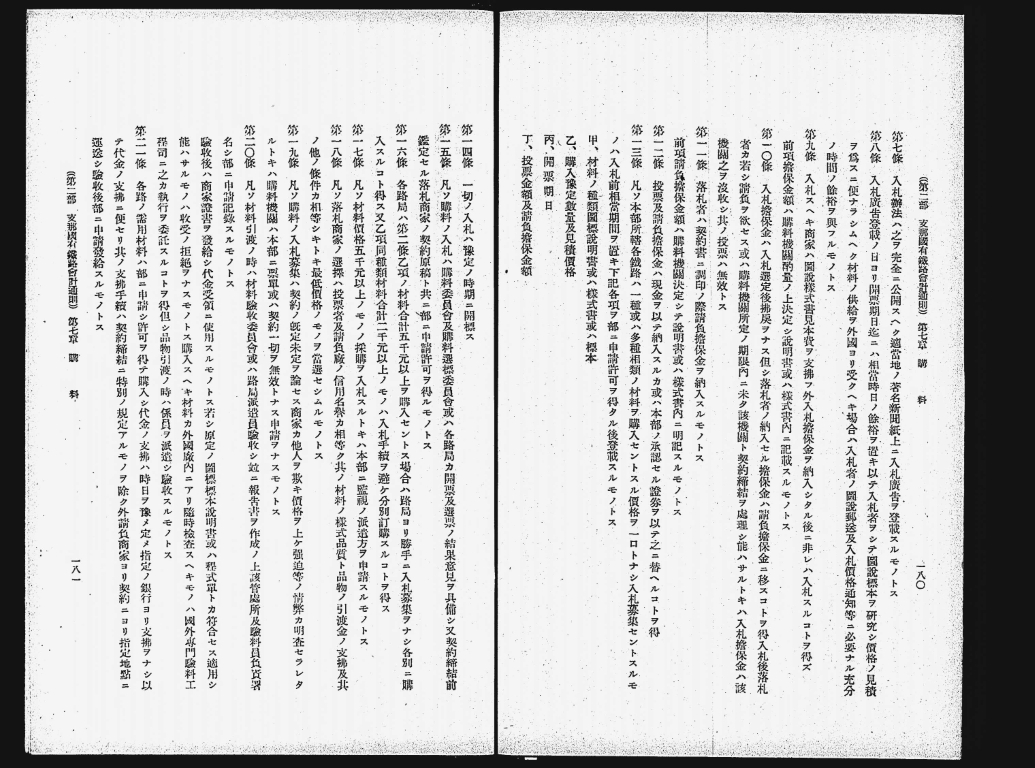 (第二部 支那國有鐵路會計通則) 第七章 購料 一八〇
第七條 入札辦法ハ之ヲ完全ニ公開スヘク適當地ノ著名新聞紙上ニ入札廣告ヲ登載スルモノトス
第八條 入札廣告登載ノ日ヨリ開票期日迄ニハ相當時日ノ餘裕ヲ置キ以テ入札者ヲシテ圖說標本ヲ研究シ價格ノ見積
ヲ爲スニ便ナラシムヘク材料ノ供給ヲ外國ヨリ受クヘキ場合ハ入札者ノ圖說郵送及入札價格通知等ニ必要ナル充分
ノ時間ノ餘裕ヲ與フルモノトス
第九條 入札スヘキ商家ハ圖說樣式書見本費ヲ支拂フ外入札擔保金ヲ納入シタル後ニ非レハ入札スルコトヲ得ズ
前項擔保金額ハ購料機關酌量ノ上決定シ說明書或ハ樣式書內ニ記載スルモノトス
第一〇條 入札擔保金ハ入札選定後拂戾ヲナス但シ落札者ノ納入セル擔保金ハ請負擔保金ニ移スコトヲ得入札後落札
者カ若シ請負ヲ欲セス或ハ購料機關所定ノ期限內ニ未タ該機關ト契約締結ヲ處理シ能ハサルトキハ入札擔保金ハ該
機關之ヲ沒收シ其ノ投票ハ無效トス
第一一條 落札者ハ契約書ニ調印ノ際請負擔保金ヲ納入スルモノトス
前項請負擔保金額ハ購料機關決定シテ說明書或ハ樣式書內ニ明記スルモノトス
第一二條 投票及請負擔保金ハ現金ヲ以テ納入スルカ或ハ本部ノ承認セル證券ヲ以テ之ニ替ヘルコトヲ得
第一三條 凡ソ本部所轄各鐵路ハ一種或ハ多種相類ノ材料ヲ購入セントスル價格ヲ一ロトナシ入札募集セントスルモ
ノハ入札前相當期間ヲ置キ下記各項ヲ部ニ申請許可ヲ得タル後登載スルモノトス
甲、材料ノ種類圖樣說明書或ハ樣式書或ハ標本
乙、購入豫定數量及見積價格
丙、開票期日
丁、投票金額及請負擔保金額
第一四條 一切ノ入札ハ豫定ノ時期ニ開標ス
第一五條 凡ソ購料ノ入札ハ購料委員會及購料選標委員會或ハ各路局カ開票及選票ノ結果意見ヲ具備シ又契約締結前
鑑定セル落札商家ノ契約原稿ト共ニ部ニ申請許可ヲ得ルモノトス
第一六條 各路局ハ第二條乙項ノ材料合計五千元以上ヲ購入セントス場合ハ路局ヨリ勝手ニ入札募集ヲナシ各別ニ購
入スルコト得ス又乙項同種類材料合計二千元以上ノモノハ入札手續ヲ避ケ分別訂購スルコトヲ得ス
第一七條 凡ソ材料價格五千元以上ノモノノ採購ヲ入札スルトキハ本部ニ監視ノ派遣方ヲ申請スルモノトス
第一八條 凡ソ落札商家ノ選擇ハ投票者及請負廠ノ信用名譽カ相等ク其ノ材料ノ樣式品質ト品物ノ引渡金ノ支拂及其
ノ他ノ條件カ相等シキトキ最低價格ノモノヲ當選セシムルモノトス
第一九條 凡ソ購料ノ入札募集ハ契約ノ既定未定ヲ論セス商家カ他人ヲ欺キ價格ヲ上ケ强迫等ノ情弊カ明查セラレタ
ルトキハ購料機關ハ本部ニ票單或ハ契約一切ヲ無效トナス申請ヲナスモノトス
第二〇條 凡ソ材料引渡ノ時ハ材料驗收委員會或ハ路局派遣員驗收シ竝ニ報告書ヲ作成ノ上該管處所及驗料員負責署
名シ部ニ申請記錄スルモノトス
驗收後ハ商家證書ヲ發給シ代金受領ニ使用スルモノトス若シ原定ノ圖樣標本說明書或ハ程式單トカ符合セス適用シ
能ハサルモノハ收受ノ拒絕ヲナスモノトス購入スヘキ材料カ外國廠內ニアリ隨時檢查スヘキモノハ國外專門驗料工
程司ニ之カ執行ヲ委託スルコトヲ得但シ品物引渡ノ時ハ係員ヲ派遣シ驗收スルモノトス
第二一條 各路ノ需用材料ハ部ニ申請シ許可ヲ得テ購入シ代金ノ支拂ハ時日ヲ豫メ定メ指定ノ銀行ヨリ支拂ヲナシ以
テ代金ノ支拂ニ便セリ其ノ支拂手續ハ契約締結ニ特別ノ規定アルモノヲ除ク外請負商家ヨリ契約ニヨリ指定地點ニ
運送シ驗收後部ニ申請發給スルモノトス
(第二部 支那國有鐵路會計通則) 第七章 購料 一八一